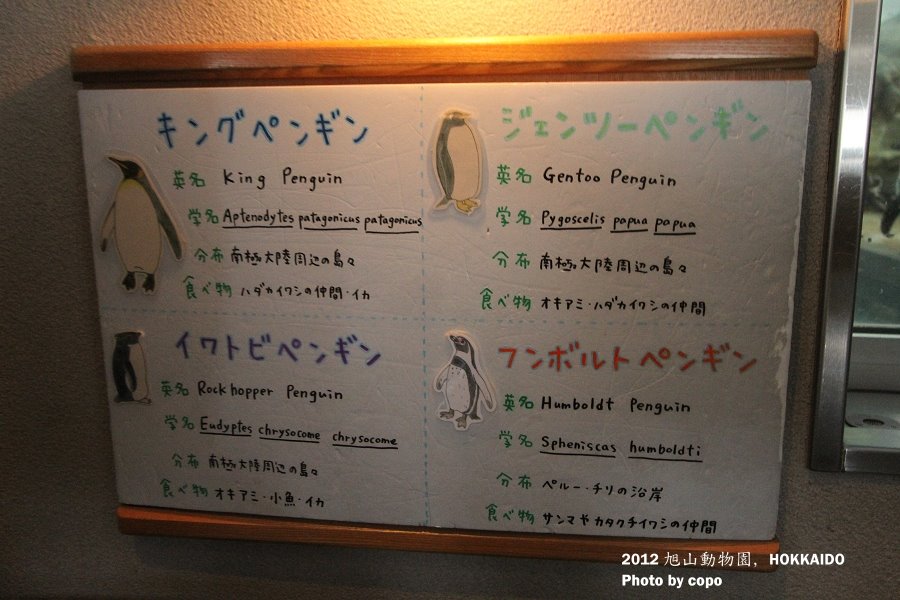 キングペンギン
英名 King Penguin
学名 Aptenodytes patagonicus patagonicus
分布 南極大陸周辺の島々
食べ物 ハダカイワシの仲間・イカ
ジェンツーペンギン
英名 Gentoo Penguin
学名 Pygoscelis papua papua
分布 南極大陸周辺の島々
食べ物 オキアミ・ハダカイワシの仲間
イワトビペンギン
英名 Rockhopper Penguin
学名 Eudyptes chrysocome chrysocome
分布 南極大陸周辺の島々
食べ物 オキアミ・小魚・イカ
フンボルトペンギン
英名 Humboldt Penguin
学名 Spheniscas humboldti
分布 ペルー・チリの沿岸
食べ物 サンマやカタクチイワシの仲間
2012 旭山動物園, HOKKAIDO
Photo by copo